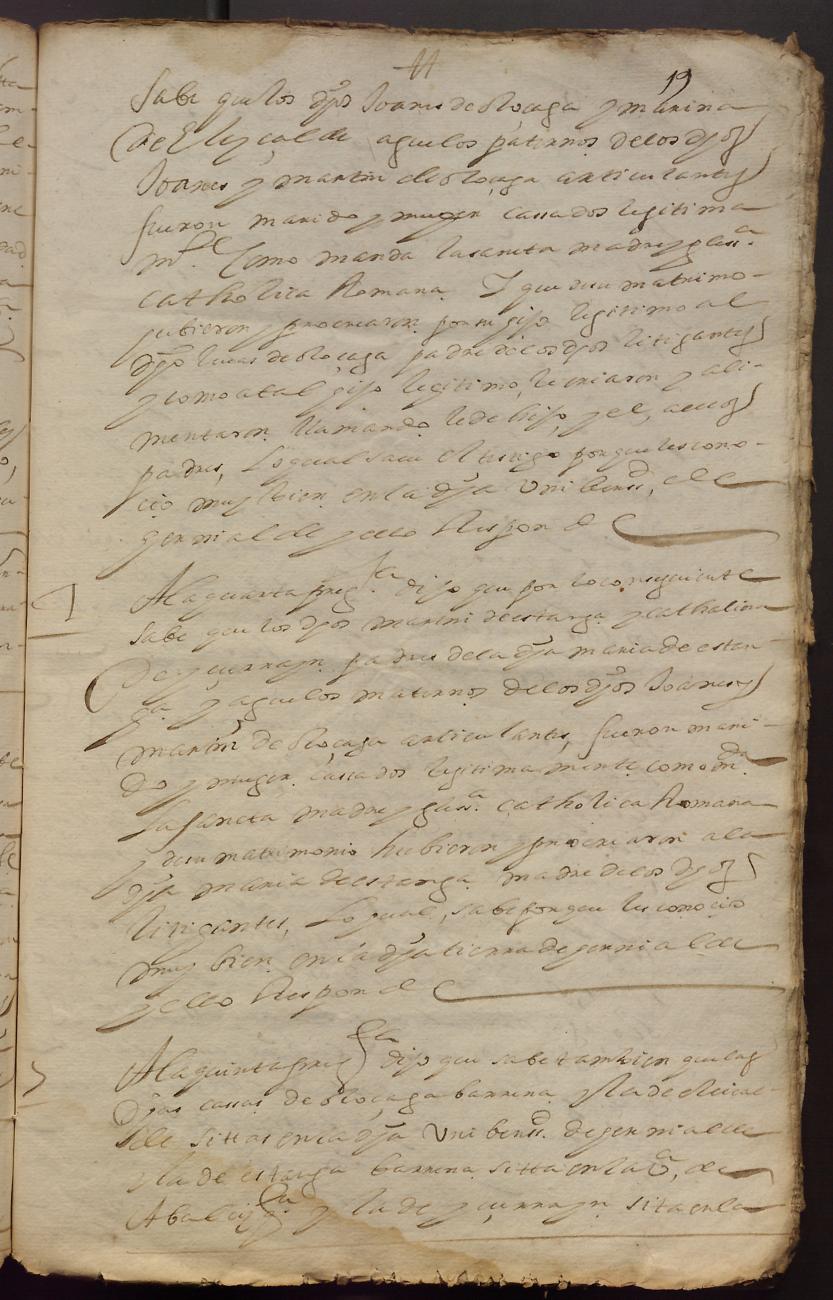 19
Sabe que los dhos Joanes de oloçaga y marina
de Eleyçalde aguelos paternos de los dhos
Joanes y martin de oloçaga articulantes
fueron marido y muger cassados legitima
mte. Como manda la sancta madre yglessa.
catholica Romana. Y que de su matrimo-
ubieron y procrearon por su hijo legitimo al
dho lucas de oloçaga padre de los dhos litigantes
y como a tal hijo legitimo, le criaron y ali-
mentaron llamando le de hijo, y el, a ellos
padres, Lo qual save el testigo porque les cono-
cio muy bien en la dha Unibersd, de
gernialde y esto Responde
A la quarta pregta. dijo que por lo consiguiente
Sabe que los dhos martin de estanga y cathalina
de yçurrayn padres de la dha maria de estan-
ga y aguelos maternos de los dhos Joanes y
martin de oloçaga articulantes, fueron mari-
do y muger cassados legitima mente como mda
la sancta madre yglessa. catholica Romana
y de su matrimonio hubieron y procrearon a la
dha maria de estanga madre de los dhos
litigantes, Lo qual, sabe porque les conocio
muy bien en la dha tierra de gernialde
y esto Responde
A la quinta pregta dijo que sabe tambien que las
dhas cassas de oloçaga barrena y la de eleiçal-
de sittas en la dha Unibersd. de gernialde
y la de estanga barrena sitta en la va, de
Abalcisqta y la de yçurrayn sita en la